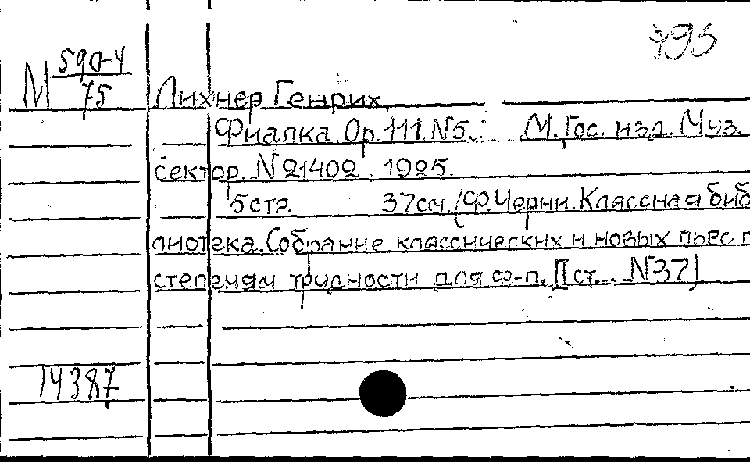 М 590-4
75
Лихнер Генрих.
Фиалка. Op. 111. N5. М. Гос. изд. Муз.
сектор. N 21402. 1925.
5 стр. 37 см. (Ф. Черни. Классная биб
лиотека. Собрание классических и новых пьес п
степеням трудности для ф-п. II ст... N37)
14387